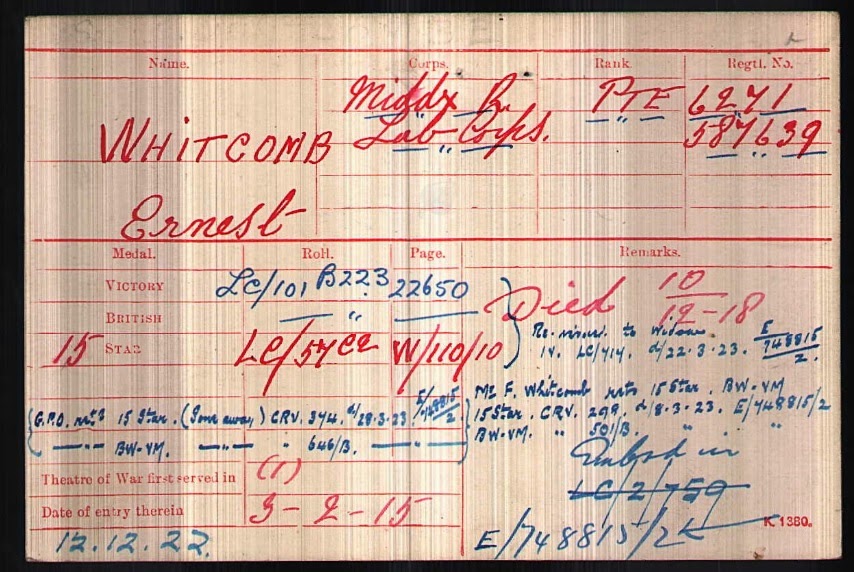 Name. Corps. Rank. Regtl. No.
Middx R. PTE 6271
WHITCOMB Lab Corps. 587639
Ernest
Medal. Roll. Page. Remarks.
VICTORY LC/101 B223 22650 Died 10/12-18
BRITISH — " —
15 STAR LC/57C2 W/110/10 Re-issue to Widow. E/748815/2.
IV. LC/414. d/22.3.23.
Mr F. Whitcomb rets 15 Star. BW-VM
(G.P.O. retd 15 Star. (Gone away,) CRV. 374. d/28.3.23. E/748815/2 15 Star. CRV. 298. d/8.3.23. E/748815/2
— BW-VM. — " — " 646/B. — BW-VM. " 501/B. " "
Embod in
Theatre of War first served in (1) LC/2/759
Date of entry therein 3-2-15 K. 1380.
12.12.22. E/748815/2K